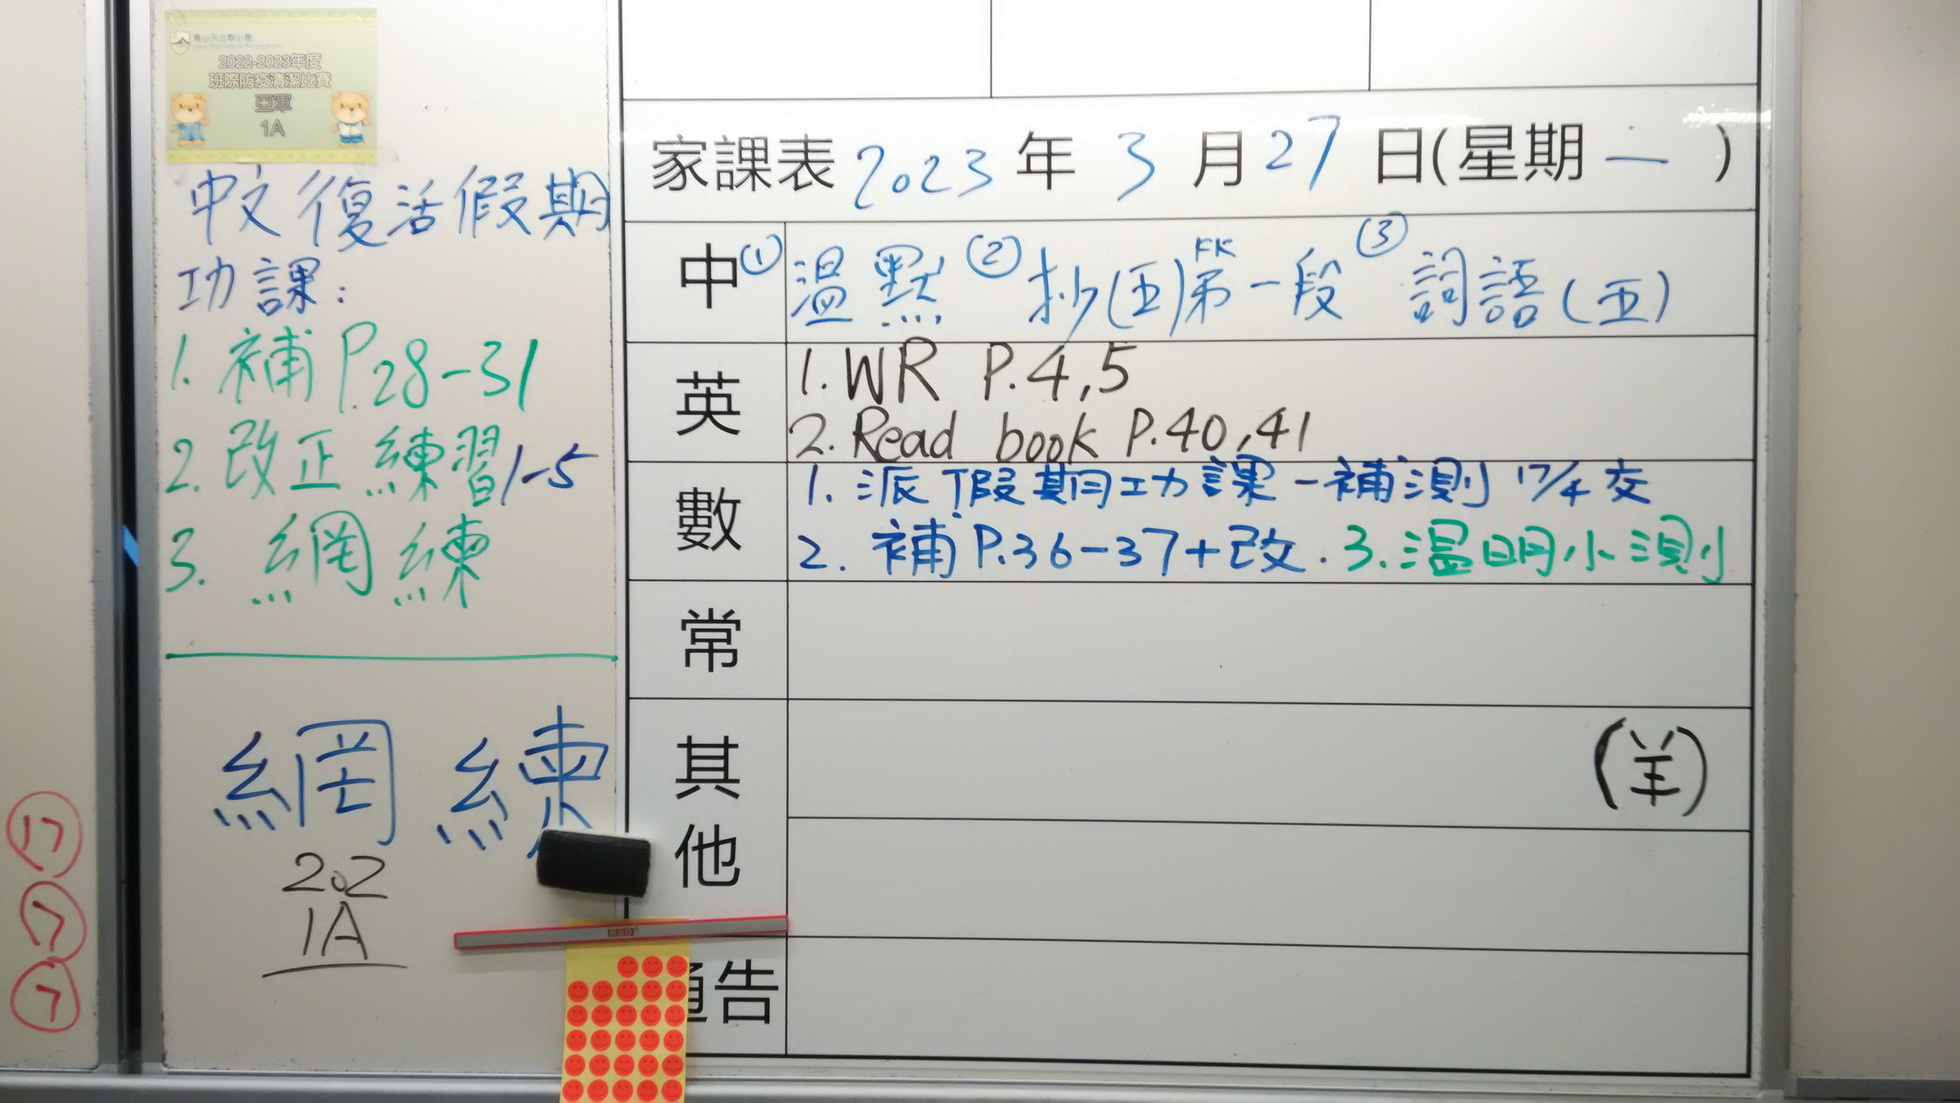 2022-2023年度
班際防疫清潔比賽
亞軍
1A
中文復活假期
功課：
1. 補 P.28-31
2. 改正 練習1-5
3. 網練
網練
202
1A
17
7
7
家課表 2023 年 3 月 27 日(星期 一 )
中 ① 温默 ② 抄(五)第一段 ③ 詞語(五)
英 1. WR P.4,5
2. Read book P.40,41
數 1. 派假期功課 - 補測 17/4 交
2. 補 P.36-37+改. 3. 温明小測
常
其他
(羊)
通告